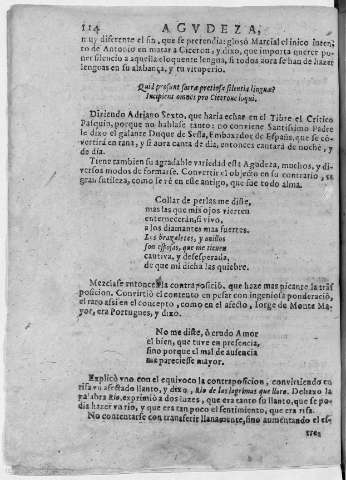 114 AGVDEZA,
muy diferente el fin, que se pretendia: glosò Marcial el inico inten-
to de Antonio en matar a Ciceron; y dixo, que importa querer po-
ner silencio a aquella eloquente lengua, si todos aora se han de hazer
lenguas en su alabança, y tu vituperio.
Quid prosunt sacræ pretiosa silentia linguæ?
Incipient omnes pro Cicerone loqui.
Diziendo Adriano Sexto, que haria echar en el Tibre el Critico
Pasquin, porque no hablasse tanto: no conviene Santissimo Padre
le dixo el galante Duque de Sessa, Embaxador de España, que se cõ-
vertirà en rana, y si aora canta de dia, entonces cantarà de noche, y
de dia.
Tiene tambien su agradable variedad esta Agudeza, muchos, y di-
versos modos de formarse. Convertir el objeto en su contrario, es
gran sutileza, como se vè en este antigo, que fue todo alma.
Collar de perlas me diste,
mas las que mis ojos vierten
enternecerán, si vivo,
a los diamantes mas fuertes.
Los braçaletes, y anillos
son espojas, que me tienen
cautiva, y desesperada,
de que mi dicha las quiebre.
Mezclase entonces la contraposiciõ, que haze mas picante la trãs-
posicion. Convirtiò el contento en pesar con ingeniosa ponderaciõ,
el raro assi en el concepto, como en el afecto, Jorge de Monte Ma-
yor, era Portugues, y dixo.
No me diste, ò crudo Amor
el bien, que tuve en presencia,
sino porque el mal de ausencia
me pareciesse mayor.
Explicò vno con el equivoco la contraposicion, convirtiendo en
risa vn afectado llanto, y dixo, Rio de las lagrimas que lloro. Debaxo la
palabra Rio, exprimiò a dos luzes, que era tanto su llanto, que se po-
dia hazer vn rio, y que era tan poco el sentimiento, que era risa.
No contentarse con transferir llanamente, sino aumentando el es-